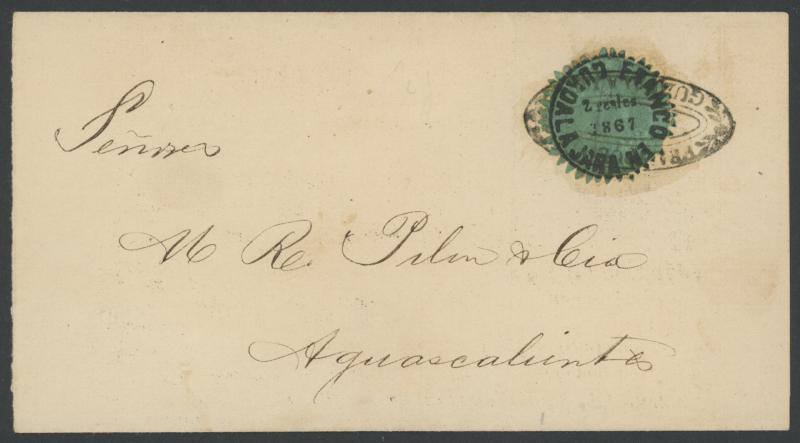 Señores
M Re. Pilon & Cia
Aguascalientes
FRANCO EN GUADALAJARA
2 reales
1867